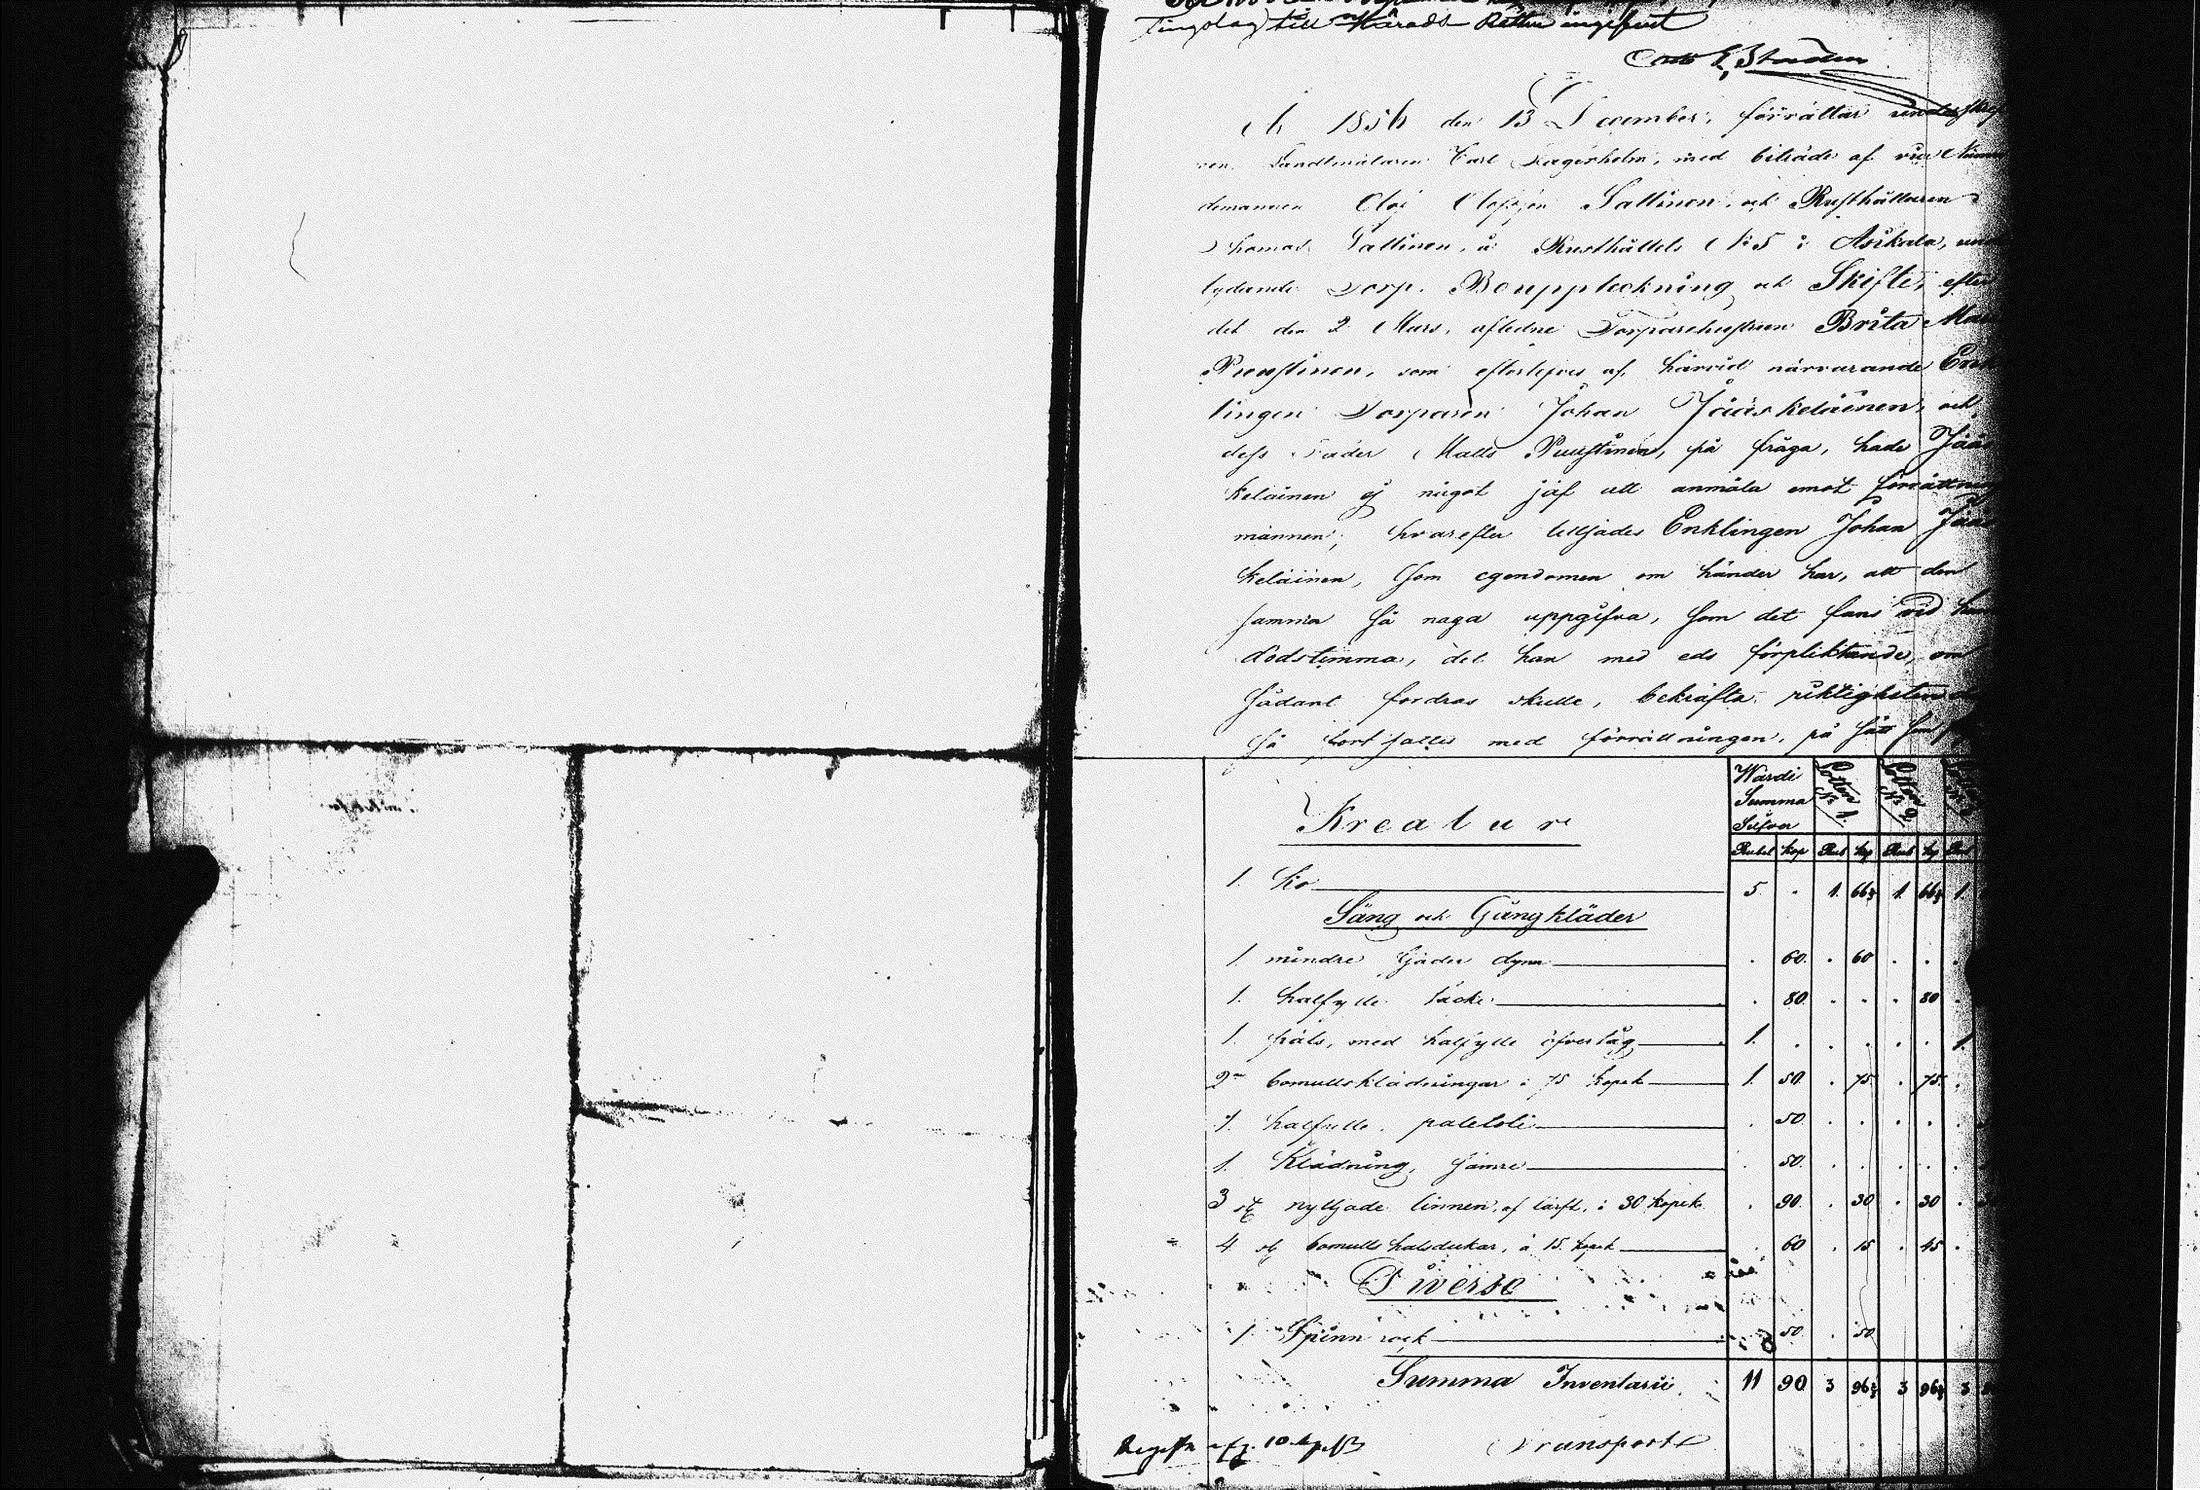 Tingslag till Härads Rätten ingifvit
År 1856 den 13 December, förrättar underskref
ven Landtmätaren Carl Lagerholm, med biträde af
demannen Olof Olofsson Lallinen, och Rusthållaren
Thomas Lallinen, å Rusthållets No 5 i Asikala, und
lydande Torp. Bouppteckning och Skifte, efter
det den 2 Mars, aflidne Torparehustrun Brita Mar
Puustinen, som efterlefves af härvid närvarande Enk
lingen Torparen Johan Jääskeläinen, och
dess Fader Matts Puustinen, på fråga, hade Jääs
keläinen ej något jäf att anmäla emot förrättnings
männen; hvarefter tilltjades Enklingen Johan Jääs
keläinen, som egendomen om händer har, att den
samma så noga uppgifva, som det fans vid
dödstimma, det han med eds förpliktande, om
sådant fordras skulle, bekräfta riktigheten
Så fortsattes med förrättningen, på sätt som
Wärdi Summa Silfver
Lotten No 1.
Lotten No 2.
Kreatur
Rubel kop Rub kop Rub kop Rub
1. Ko 5 . 1. 66⅔ 1. 66⅔ 1.
Säng och Gångkläder
1. mindre fjäder dyna . 60. . 60 . .
1. halfylle täcke . 80. . . . 80 .
1. päls, med halfylle öfvertåg 1. . . . . . 1.
2ne bomullsklädningar à 75 kopek 1. 50. . 75. . 75. .
1. halfylle paletole . 50. . . . . .
1. Klädning, sämre . 50. . . . .
3 st nyttjade linnen, af lärft, à 30 kopek . 90. . 30 . 30 .
4 st bomulls halsdukar, à 15. kopek . 60 . 15 . 45 .
Diverse
1. Spinnrock . 50. . 50
Summa Inventarii 11 90 3 96⅔ 3 96⅔ 3
Transport